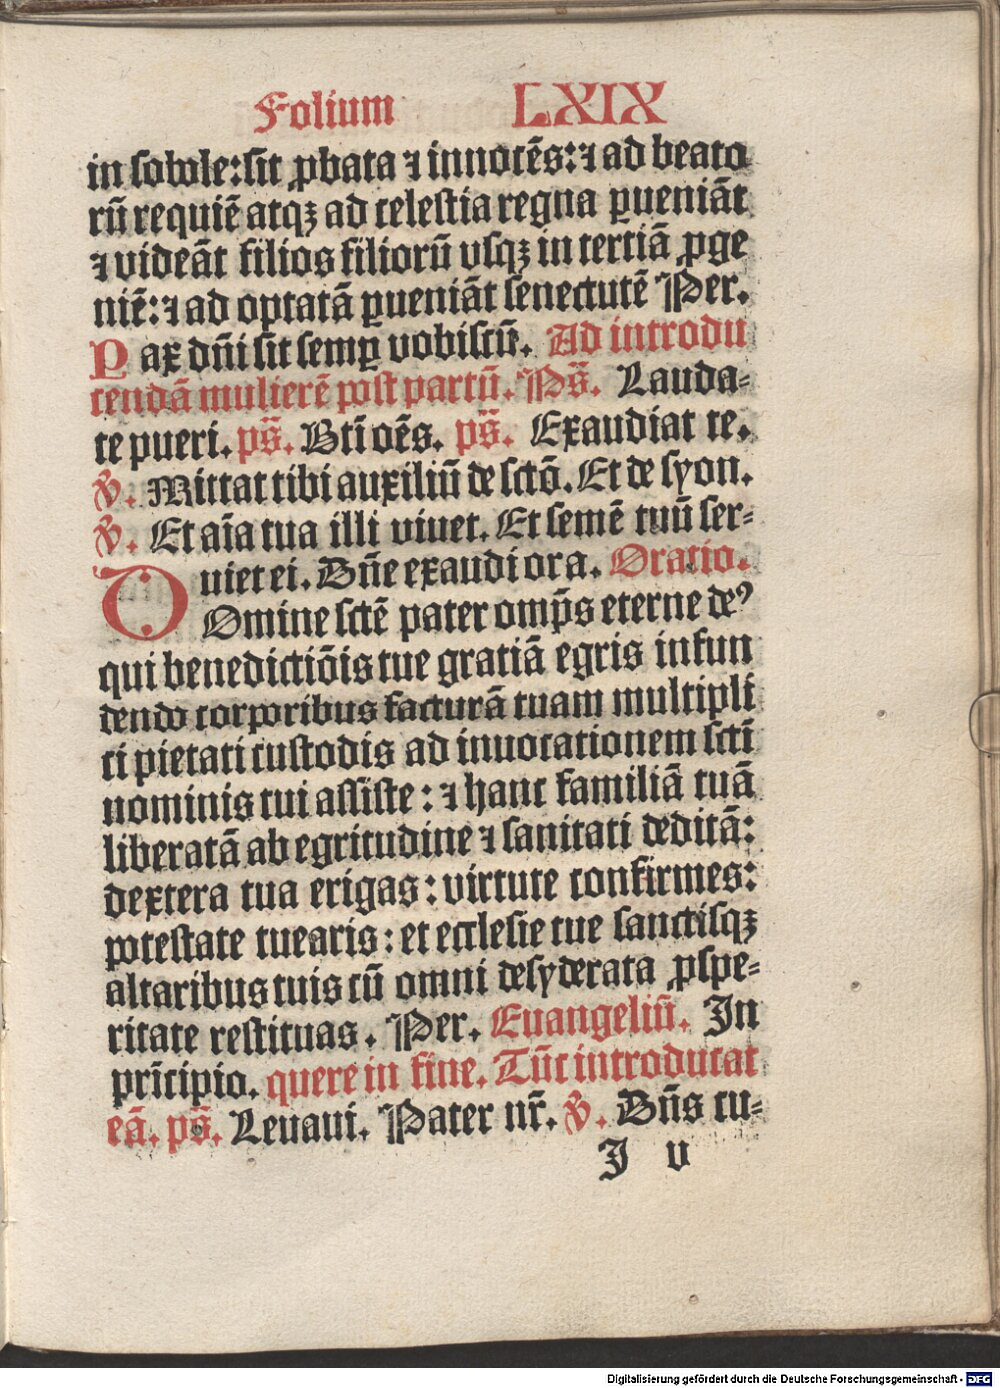 Folium LXIX
in sobole: sit ꝓbata ⁊ innocēs: ⁊ ad beato
rū requiē atqꝫ ad celestia regna ꝑueniāt
⁊ videāt filios filiorū vsqꝫ in tertiā ꝓge
niē: ⁊ ad optatā ꝑueniāt senectutē Per.
Pax dn̄i sit semꝑ vobiscū. Ad introdu
cendā mulierē post partū. Ps̄. Lauda⸗
te pueri. ps̄. Bt̄i oēs. ps̄. Exaudiat te.
℣. Mittat tibi auxiliū de sctō. Et de syon.
℣. Et aīa tua illi viuet. Et semē tuū ser⸗
uiet ei. Dn̄e exaudi ora. Oratio.
DOmine sctē pater omp̄s eterne deꝰ
qui benedictiōis tue gratiā egris infun
dendo corporibus facturā tuam multipli
ci pietati custodis ad inuocationem sctī
nominis tui assiste: ⁊ hanc familiā tuā
liberatā ab egritudine ⁊ sanitati deditā:
dextera tua erigas: virtute confirmes:
potestate tuearis: et ecclesie tue sanctisqꝫ
altaribus tuis cū omni desyderata ꝓspe⸗
ritate restituas. Per. Euangeliū. In
prīcipio. quere in fine. Tūc introducat
eā. ps̄. Leuaui. Pater nr̄. ℣. Dn̄s cu⸗
J v
Digitalisierung gefördert durch die Deutsche Forschungsgemeinschaft - DFG